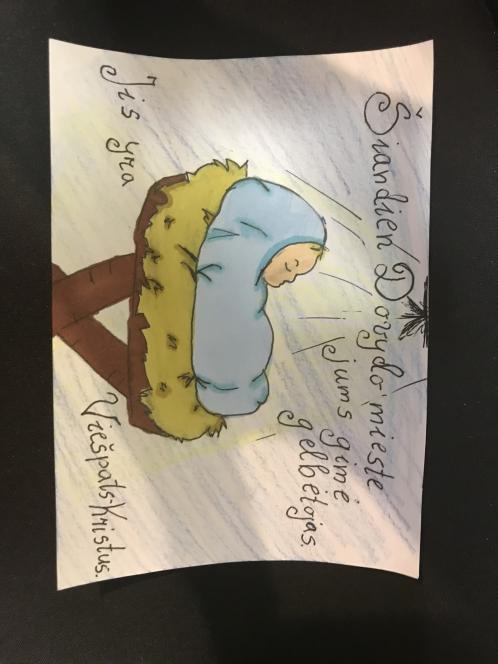 Šiandien Dovydo mieste
jums gimė
gelbėtojas.
Jis yra
Viešpats-Kristus.